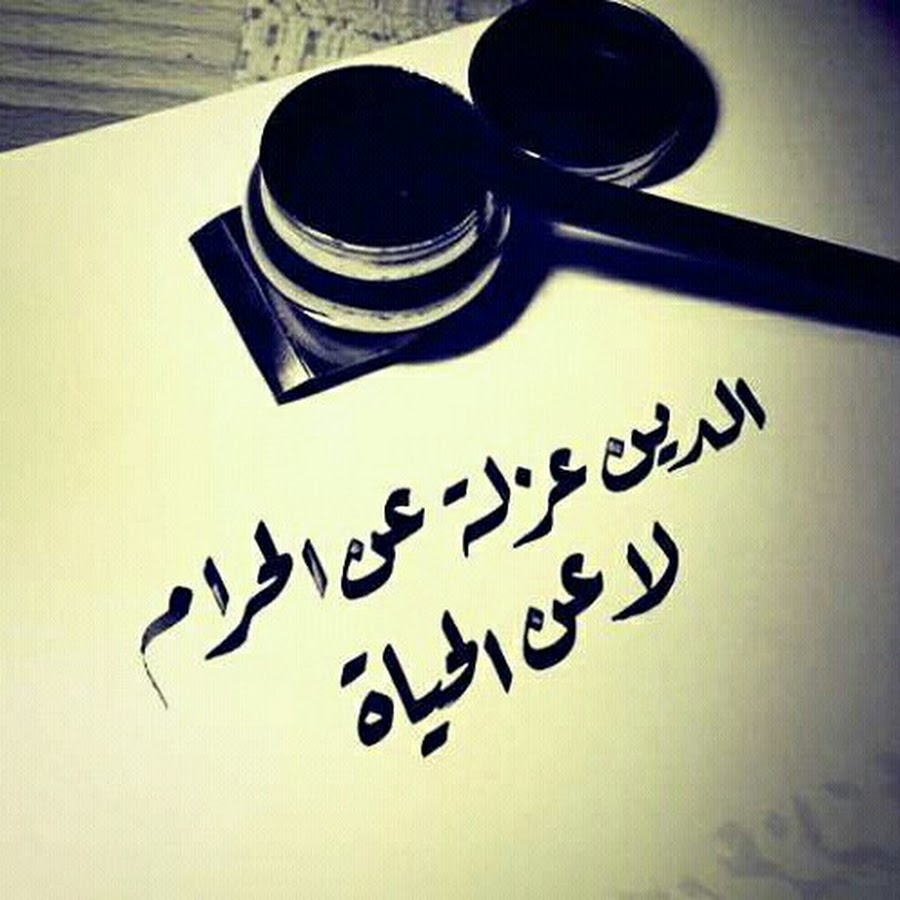 الدين عزلة عن الحرام
لا عن الحياة